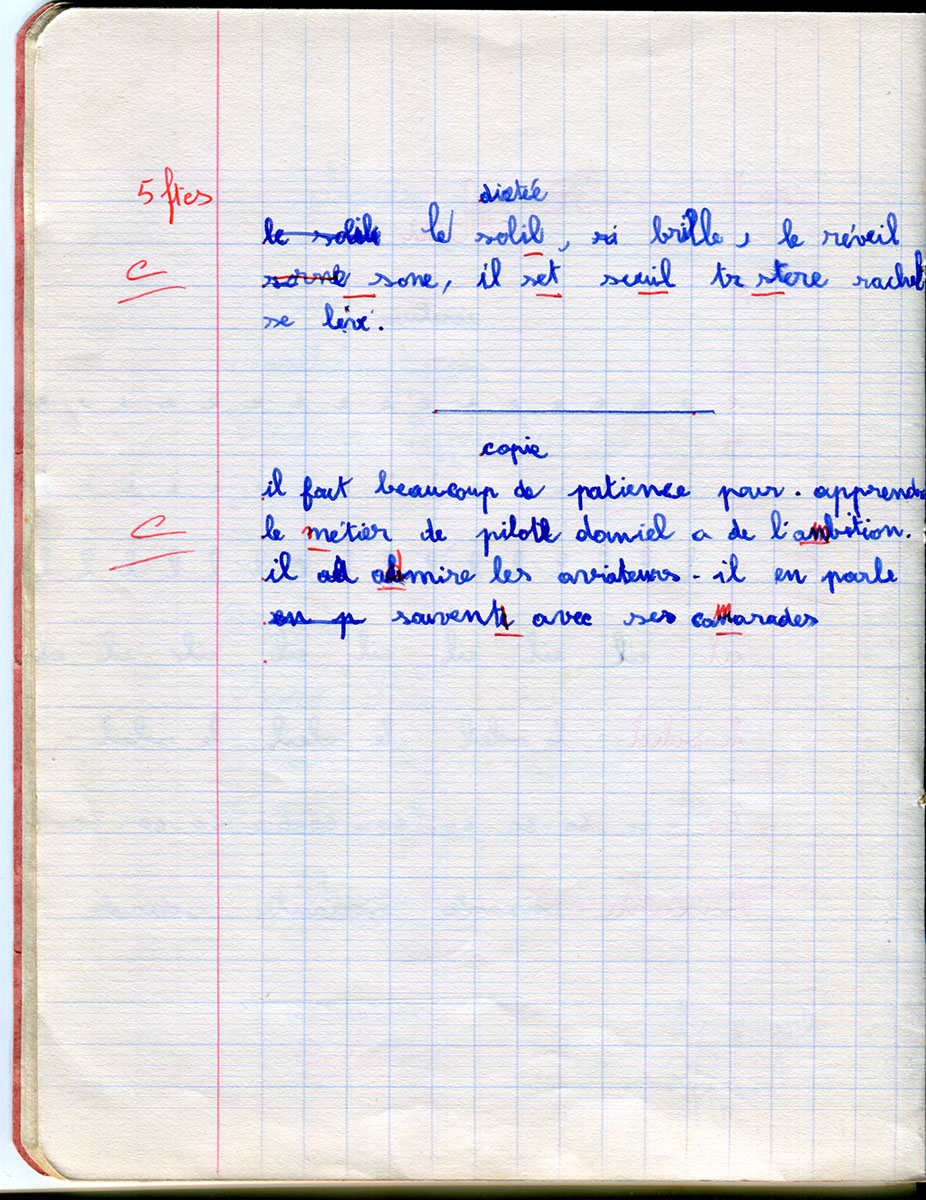 dictée
5 ftes le solile le solil, si brille, le réveil
C sorne sone, il set seuil tr stere rachel
se lève.
copie
il faut beaucoup de patience pour. apprendre
C le métier de pilote daniel a de l'ambition.
il ad admire les aviateurs. il en parle
en p souvent avec ses camarades